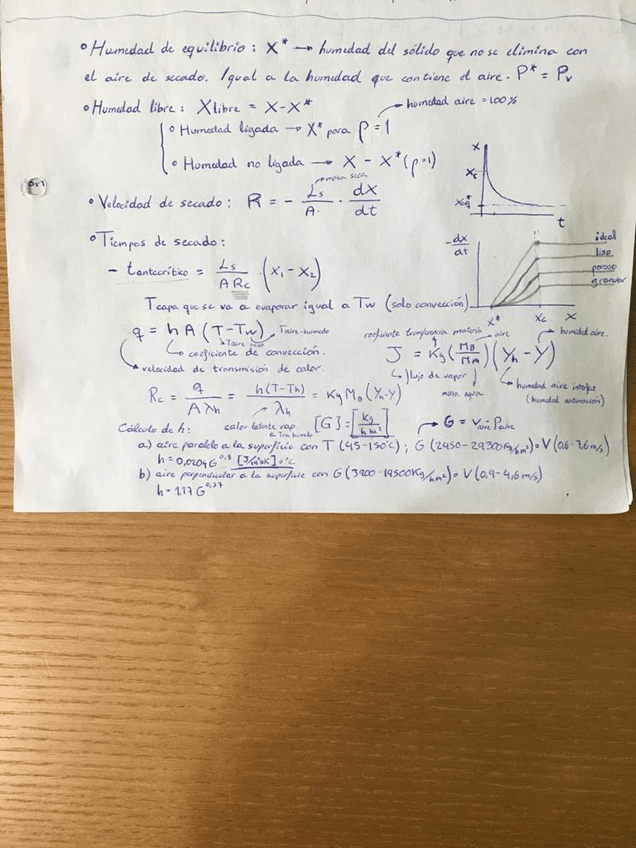 ° Humedad de equilibrio : X* → humedad del sólido que no se elimina con
el aire de secado. Igual a la humedad que contiene el aire. P* = Pv
° Humedad libre : Xlibre = X - X*
humedad aire = 100%
° Humedad ligada → X* para φ = 1
° Humedad no ligada → X - X* (φ=1)
° Velocidad de secado : R = - Ls/A · dX/dt
X
Xc
t
° Tiempos de secado :
- tantecrítico = Ls/(A Rc) · (X1 - X2)
-dx/dt
ideal
liso
poroso
granular
X* Xc X
Tcapa que se va a evaporar igual a Tw (solo convección)
q = h A (T - Tw) Taire-húmedo
Taire seco
coeficiente de convección.
velocidad de transmisión de calor.
coeficiente transferencia materia aire humedad aire.
J = Ky (MB/MA) (Yh - Y)
flujo de vapor
masa agua
humedad aire interfase
(humedad saturación)
Rc = q/(A λh) = h(T-Th)/λh = Ky MB (Yh-Y)
Cálculo de h : calor latente vap. a Tm húmedo [G] = [kg/h m²] → G = Vaire · ρaire
a) aire paralelo a la superficie con T (45-150°C) ; G (2450-29300 Kg/hm²) o V (0,6-7,6 m/s)
h = 0,0204 G^0,8 [J/m²sK] o °C
b) aire perpendicular a la superficie con G (3900-19500 Kg/hm²) o V (0,9-4,6 m/s)
h = 1.17 G^0,37